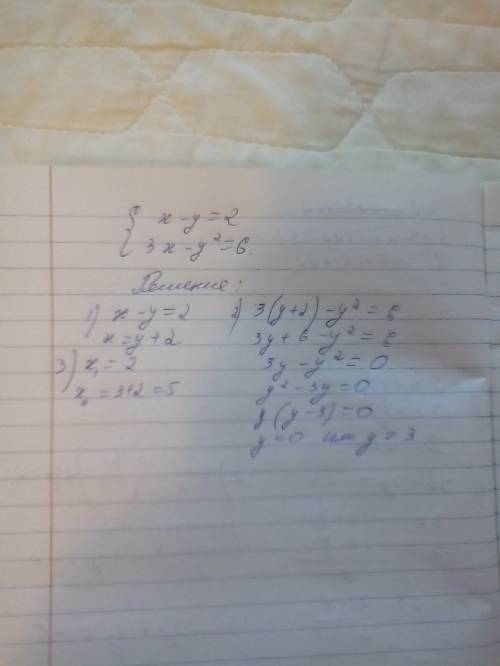 { x - y = 2
3x - y² = 6.
Решение:
1) x - y = 2
x = y + 2
2) 3(y+2) - y² = 6
3y + 6 - y² = 6
3y - y² = 0
y² - 3y = 0
y(y-3) = 0
y = 0 или y = 3
3) x₁ = 2
x₂ = 3+2 = 5